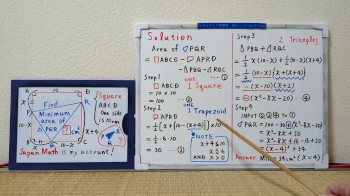 Find
Minimum
area of
△PQR
? cm²
Square
ABCD
One side
is 10cm
10-X
X+4
Japan Math is my account!
Solution
Area of △PQR
= □ABCD - □APRD
- △PBQ - △RQC
Step 1 ONE
□ABCD 1 Square
= 10 x 10
= 100 … ②
Step 2 ONE 1 Trapezoid
□APRD
= ½[x+{10-(x+4)}]×10
= ½·6·10
= 30 … ③
NOTE
x+4≦10
AND x>0
Step 3 2 Triangles
△PBQ + △RQC
= ½x(10-x)+½(10-x)(x+4)
= ½(10-x){x+(x+4)}
= -(x-10)(x+2)
= -(x²-8x-20) … ④
Step 4
INPUT ②③④ to ①
△PQR = 100-30+(x²-8x-20)
= x²-8x+50
= x²-8x+16-16+50
= (x-4)²+34
Answer Min=34cm² (x=4)